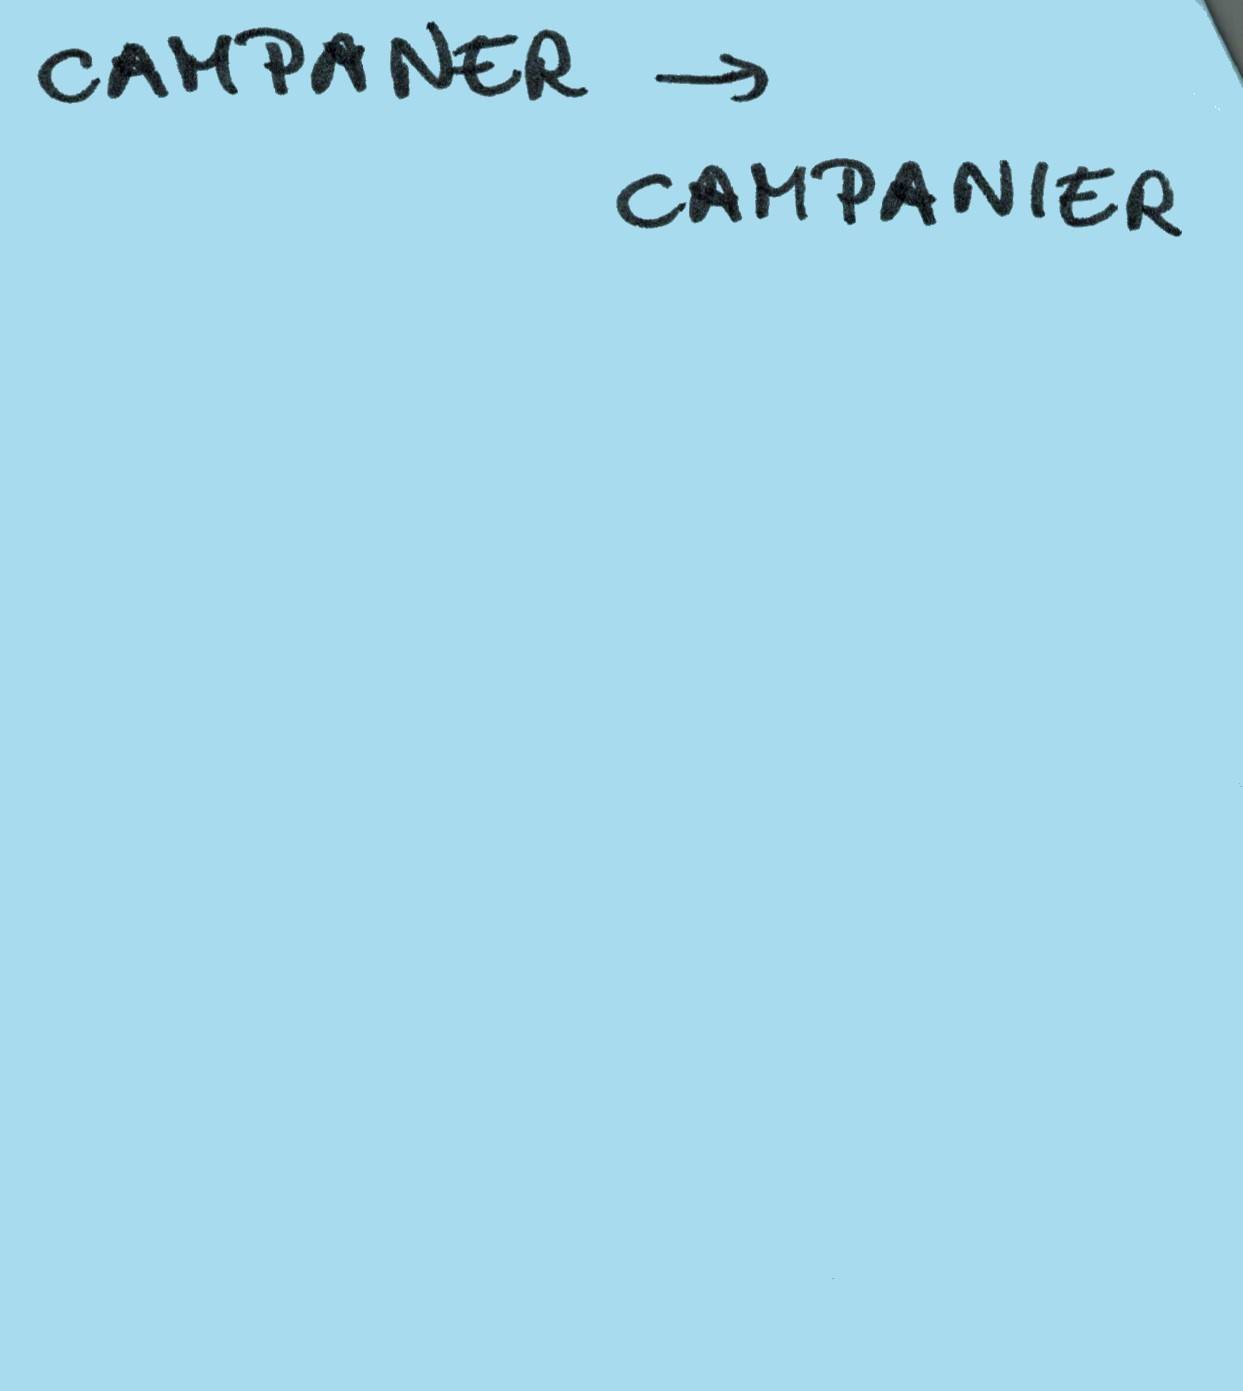 CAMPANER →
CAMPANIER